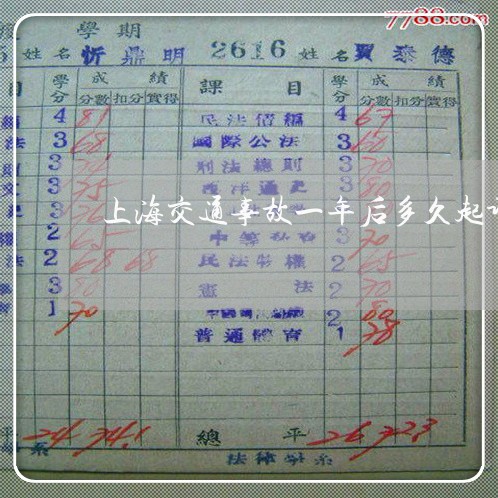 7788.com
學期
姓名 忻鼎明 2616 姓名 賈泰德
目 學分 成績 課目 學分 成績
分數 扣分 實得 分數 扣分 實得
4 81 民法債編 4 67
法 3 68 國際公法 3 60
3 刑法總則 3 70
3 75 西洋通史 3 80
上海交通事故一年后多久起
2 65 3 70
法 2 68 68 民法物權 2 65
3 80 憲法 2 70
育 1 70 2 80
普通體育 1 78
平 24 74.1 總平 26 72.3
系 法律學系